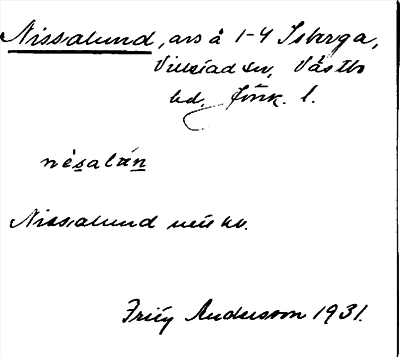 Nissalund, ars å 1-4 Isberga,
Villstad sn, Västbo
hd, Jönk. l.
nìsalún
Nissalund
Andersson 1931.